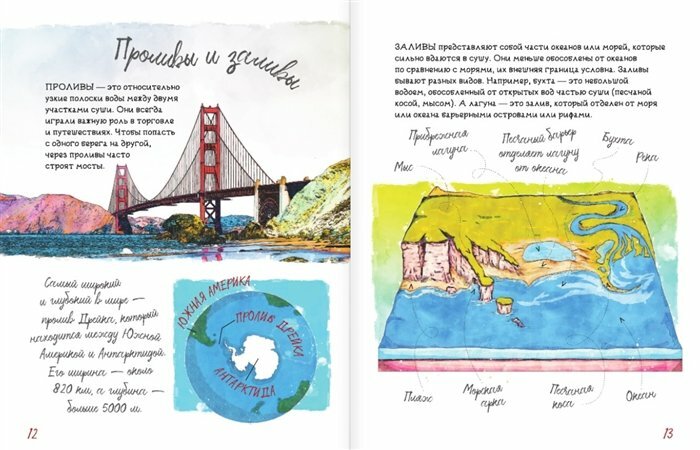 Проливы и заливы
ПРОЛИВЫ — это относительно
узкие полоски воды между двумя
участками суши. Они всегда
играли важную роль в торговле
и путешествиях. Чтобы попасть
с одного берега на другой,
через проливы часто
строят мосты.
Самый широкий
и глубокий в мире —
пролив Дрейка, который
находится между Южной
Америкой и Антарктидой.
Его ширина — около
820 км, а глубина —
больше 5000 м.
ЮЖНАЯ АМЕРИКА
ПРОЛИВ ДРЕЙКА
АНТАРКТИДА
12
ЗАЛИВЫ представляют собой части океанов или морей, которые
сильно вдаются в сушу. Они меньше обособлены от океанов
по сравнению с морями, их внешняя граница условна. Заливы
бывают разных видов. Например, бухта — это небольшой
водоем, обособленный от открытых вод частью суши (песчаной
косой, мысом). А лагуна — это залив, который отделен от моря
или океана барьерными островами или рифами.
Прибрежная
лагуна
Песчаный барьер
отделяет лагуну
от океана
Бухта
Мыс
Река
Пляж
Морская
арка
Песчаная
коса
Океан
13